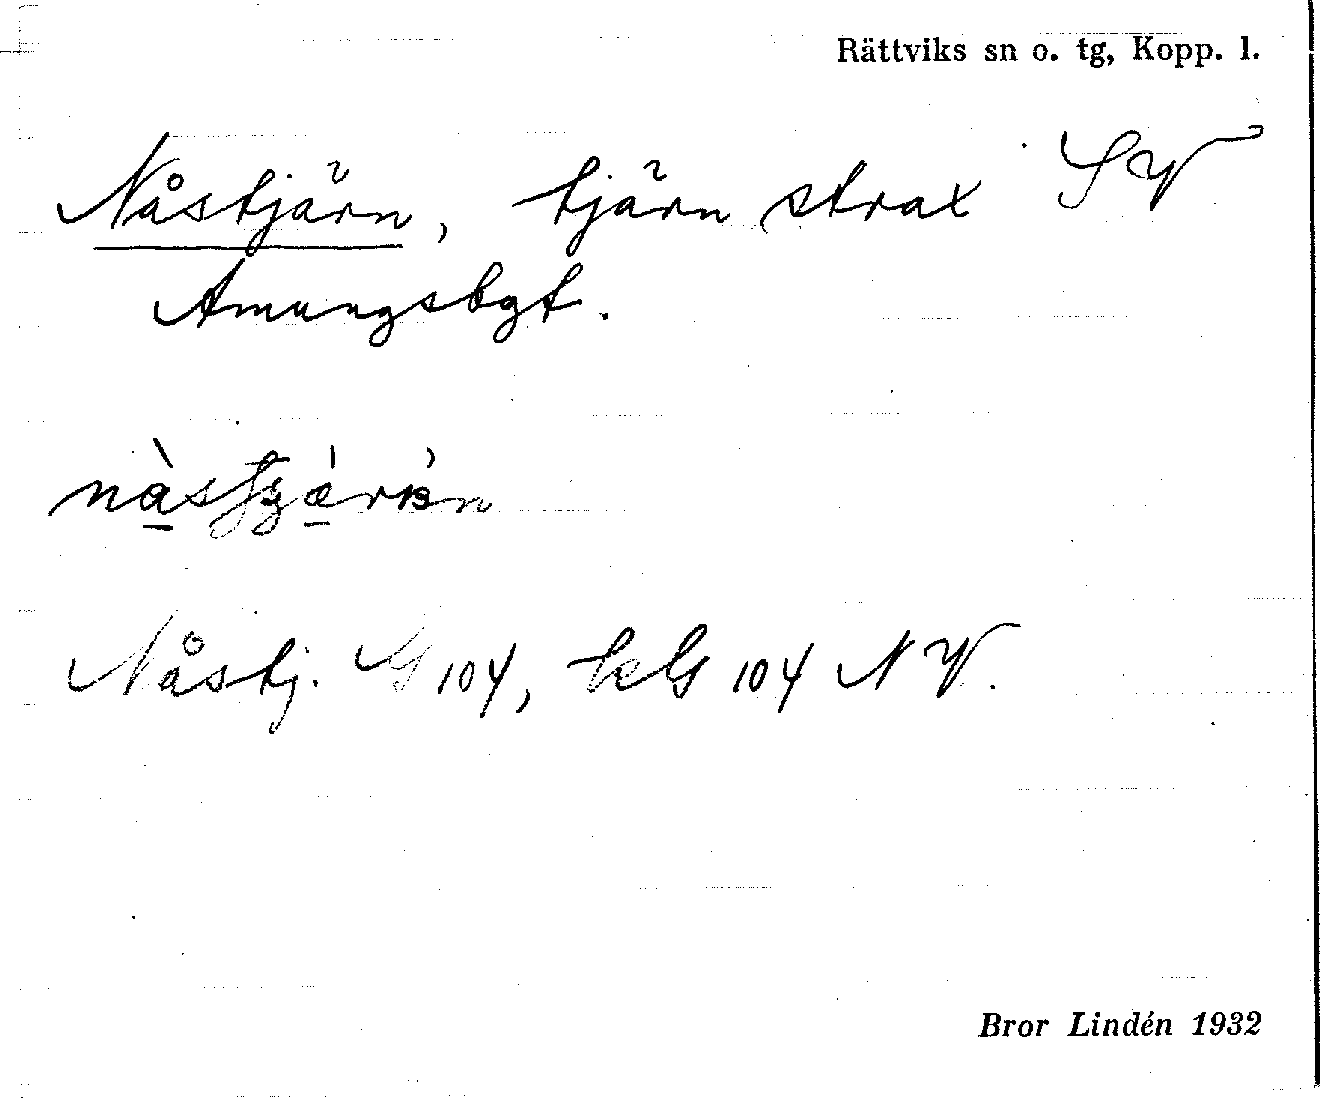 Rättviks sn o. tg, Kopp. l.
Nåstjärn, tjärn strax SV
Amungsbgt.
Nåstj. G 104, G 104 NV.
Bror Lindén 1932